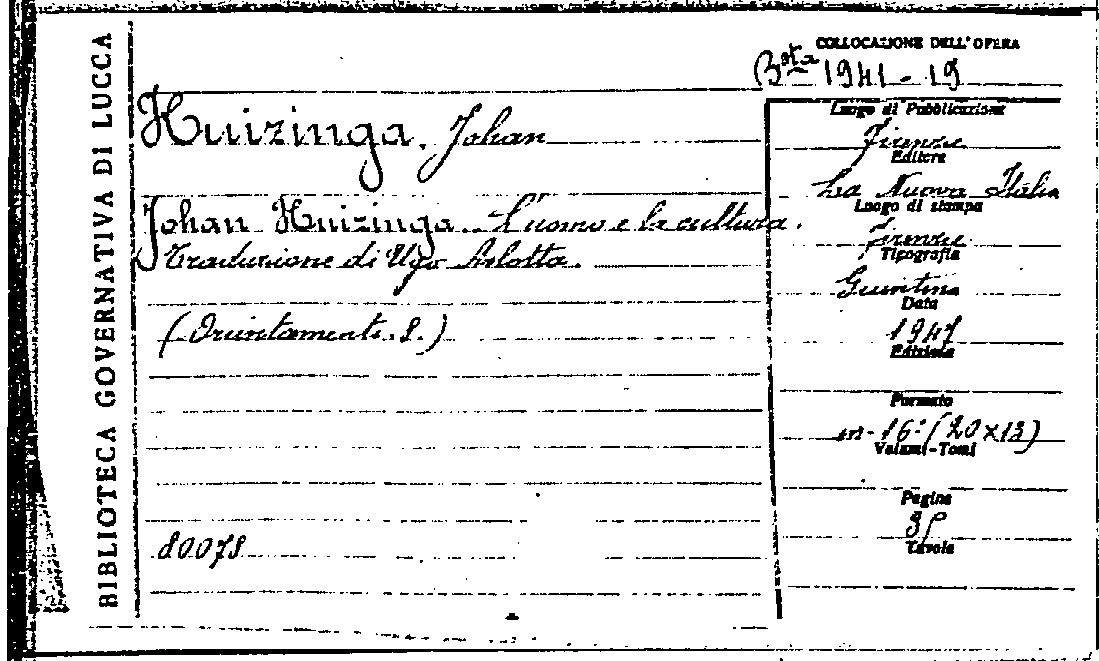 BIBLIOTECA GOVERNATIVA DI LUCCA
COLLOCAZIONE DELL'OPERA
Bsta 1941-19
Huizinga, Johan
Johan Huizinga. L'uomo e la cultura.
Traduzione di Ugo Arlotta.
(Orientamenti. 8.)
80078
Luogo di Pubblicazione
Firenze
Editore
La Nuova Italia
Luogo di stampa
Firenze
Tipografia
Giuntina
Data
1947
Edizione
Formato
in-16° (20x13)
Volumi-Tomi
Pagine
Tavole